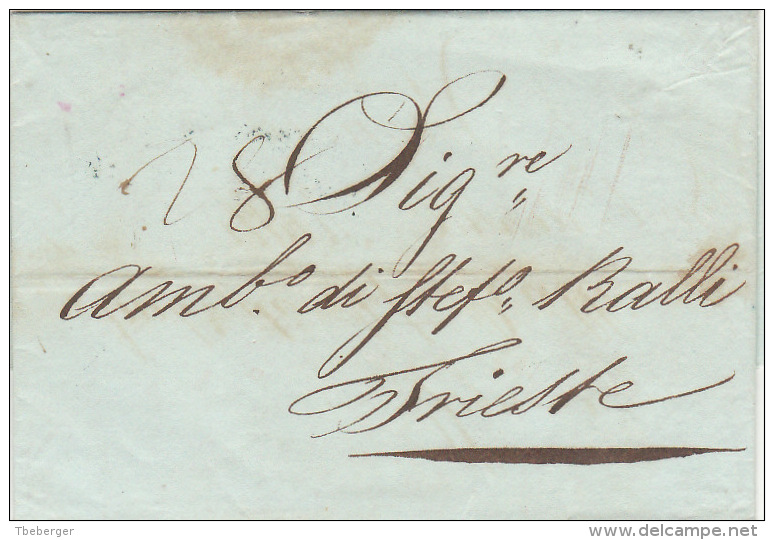 28 Sig.re
Amb.o di Stef.o Ralli
Trieste
Tbeberger
delcampe.net